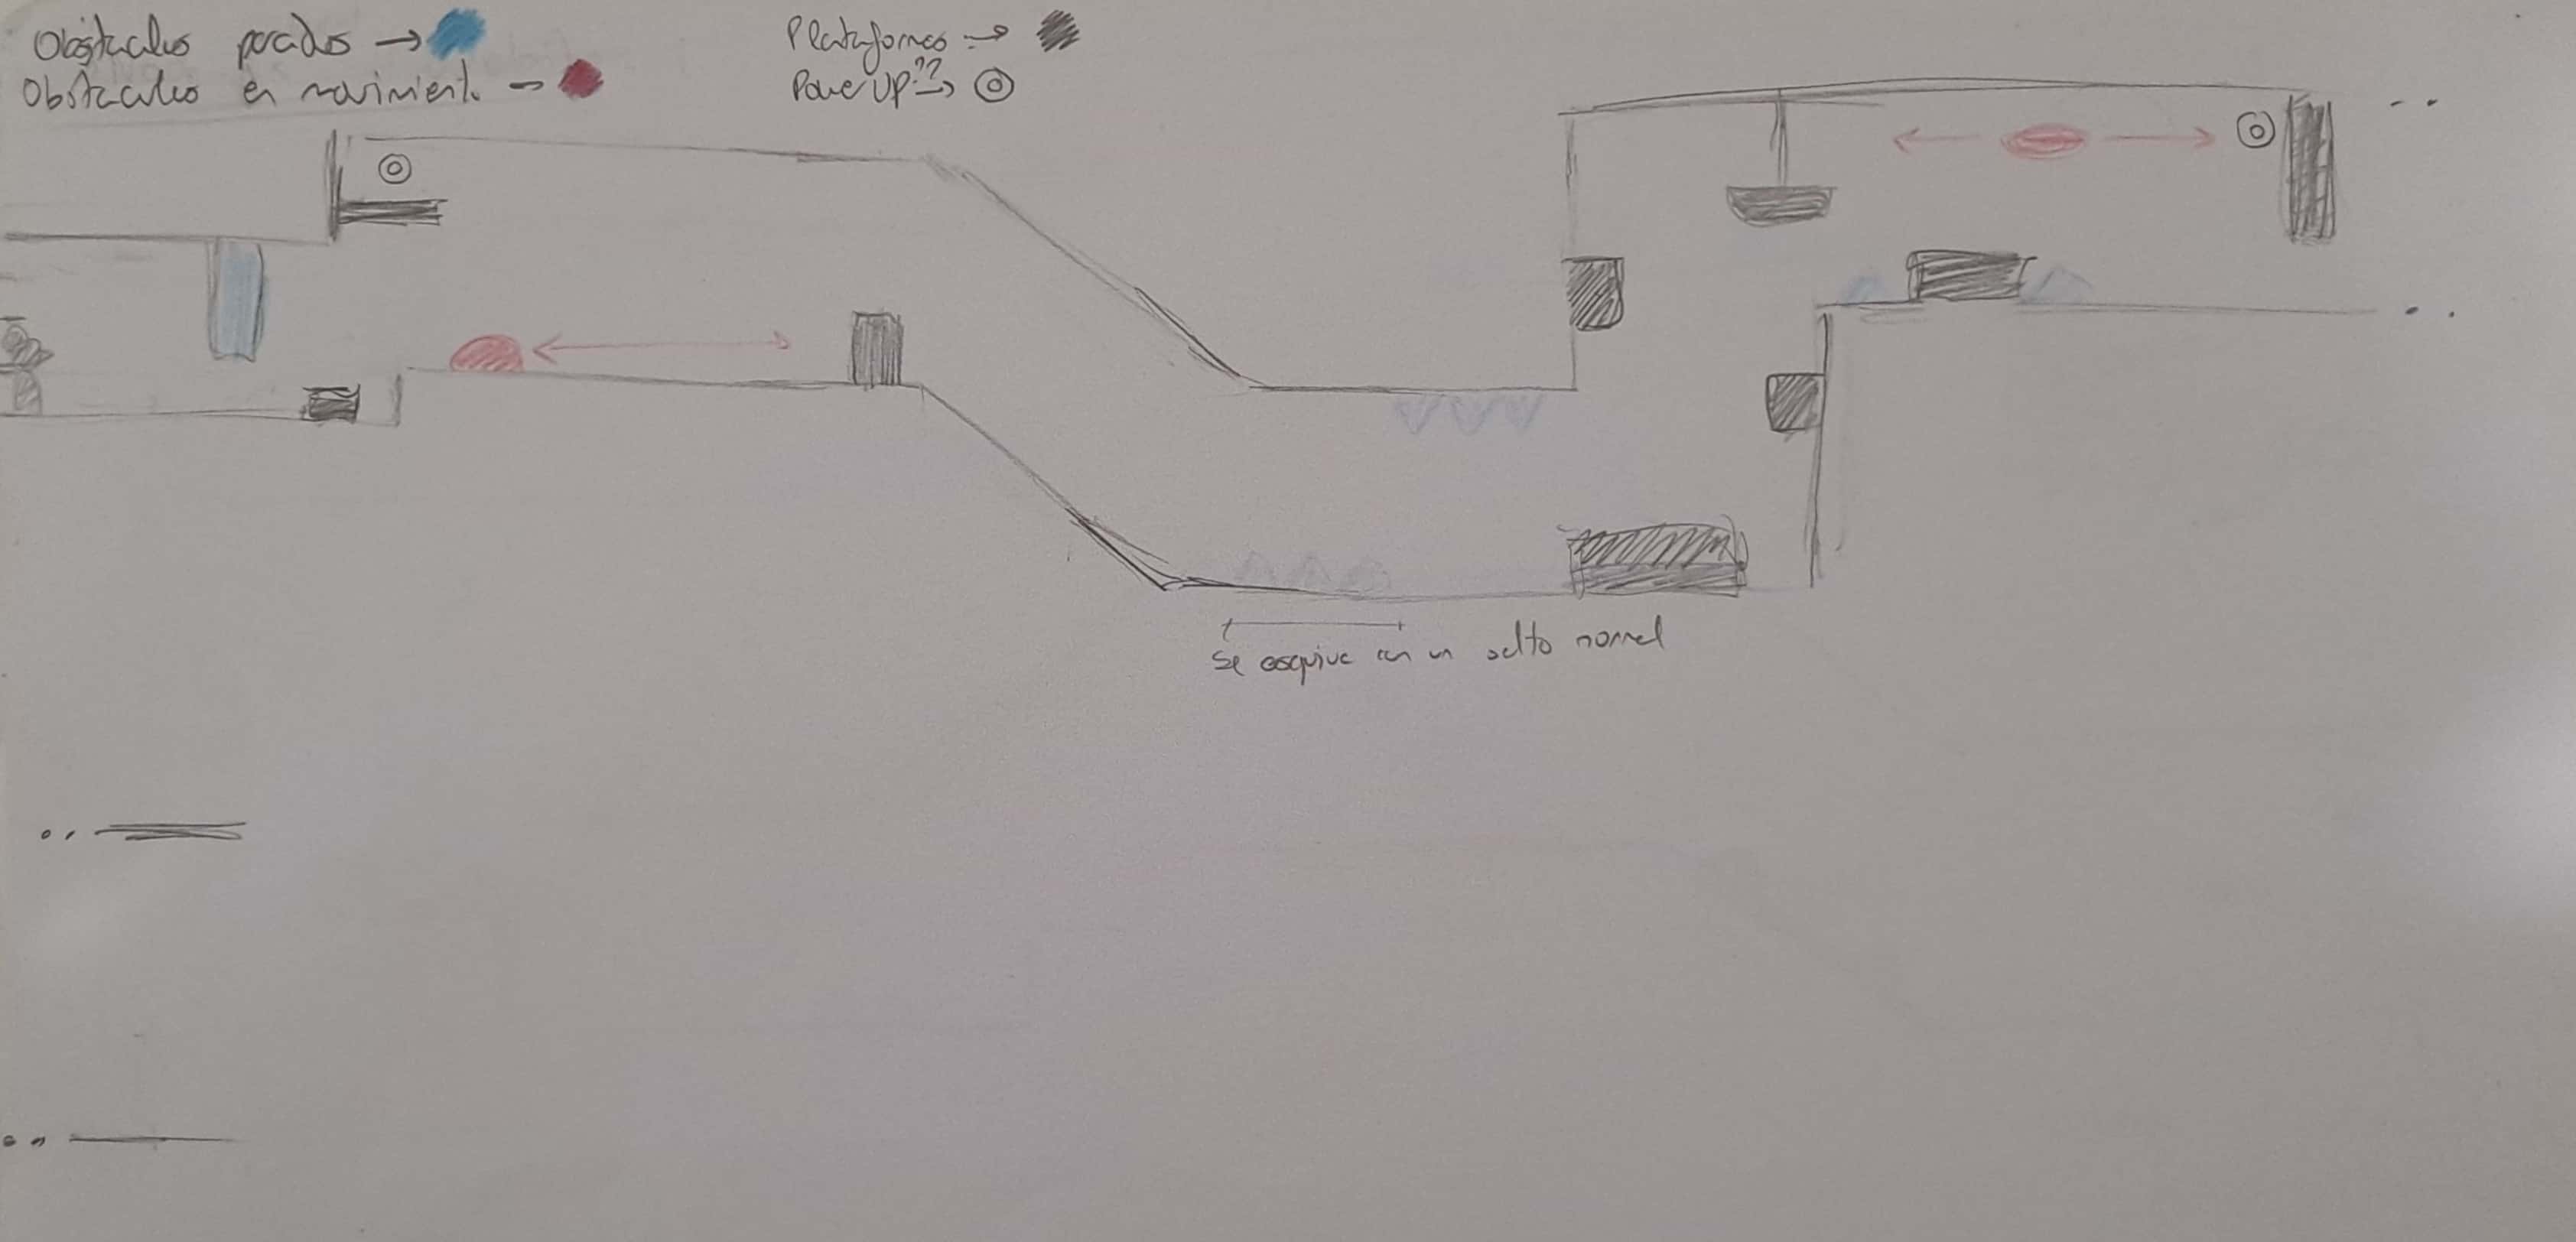 Obstaculos parados →
Obstaculos en movimiento →
Plataformas →
Power UP?? →
Se esquiva con un salto normal